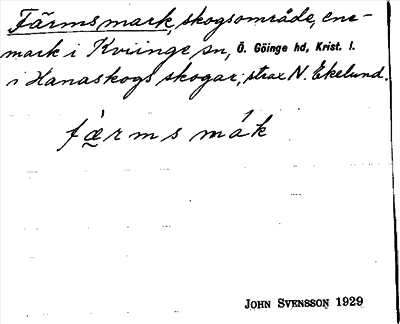 Färmsmark, skogsområde, ene-
mark i Kviinge sn, Ö. Göinge hd, Krist. l.
i Hanaskogs skogar, strax N. Ekelund.
fæ̀rmsmák
JOHN SVENSSON 1929